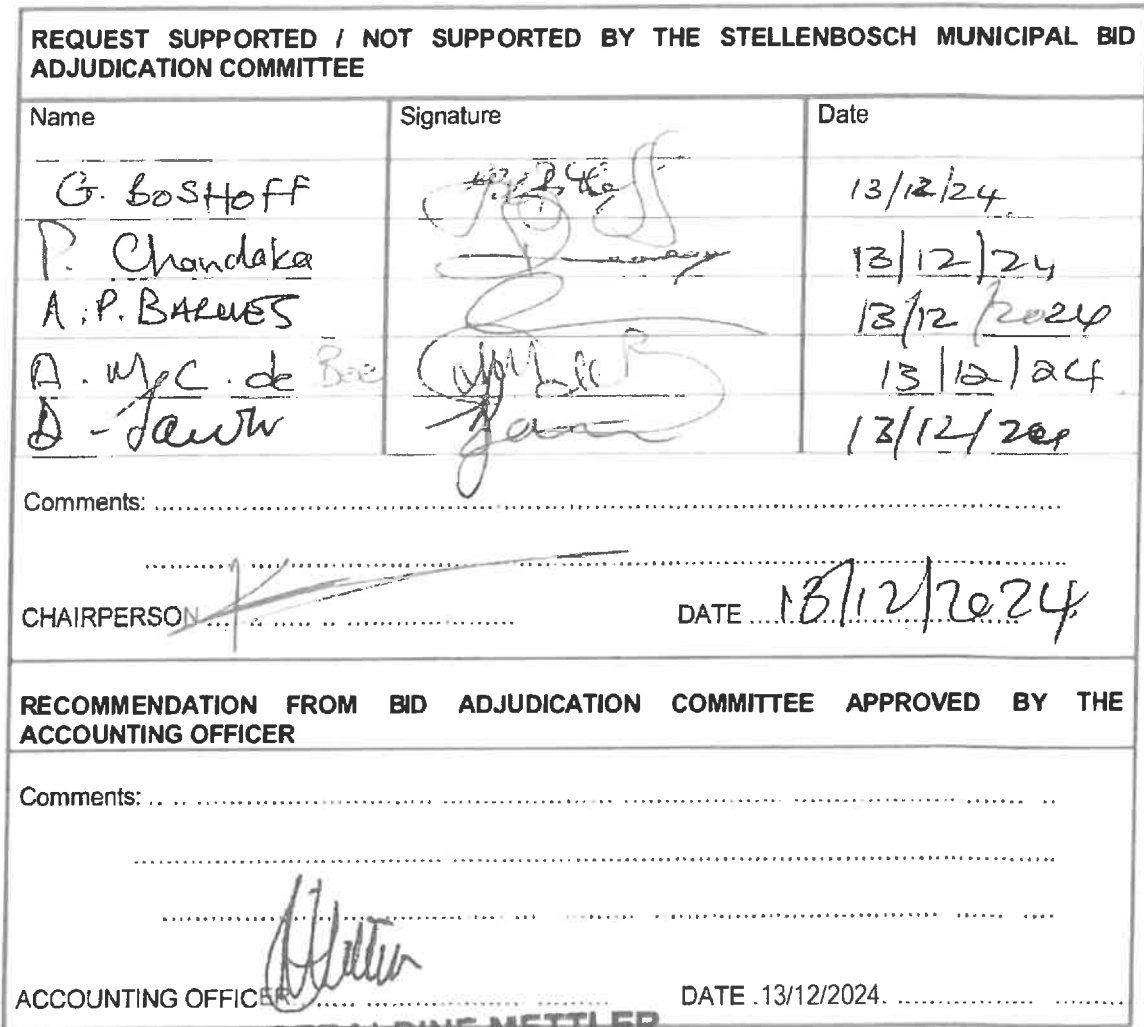 REQUEST SUPPORTED / NOT SUPPORTED BY THE STELLENBOSCH MUNICIPAL BID
ADJUDICATION COMMITTEE
Name Signature Date
G. BOSHOFF 13/12/24
P. Chandaka 13/12/24
A.P. BARNES 13/12/2024
A. M. C. de Bee 13/12/24
D - 13/12/
Comments:
CHAIRPERSON DATE 13/12/2024
RECOMMENDATION FROM BID ADJUDICATION COMMITTEE APPROVED BY THE
ACCOUNTING OFFICER
Comments:
ACCOUNTING OFFICER DATE 13/12/2024.
METTLER